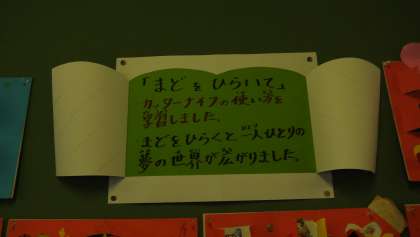 「まどをひらいて」
カッターナイフの使い方を
学習しました。
まどをひらくと一人ひとりの
夢の世界が広がりました。